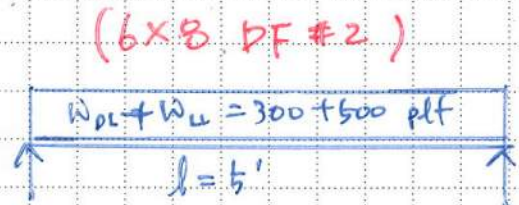 (6×8 DF #2)
W_DL + W_LL = 300 + 500 plf
l = 5'